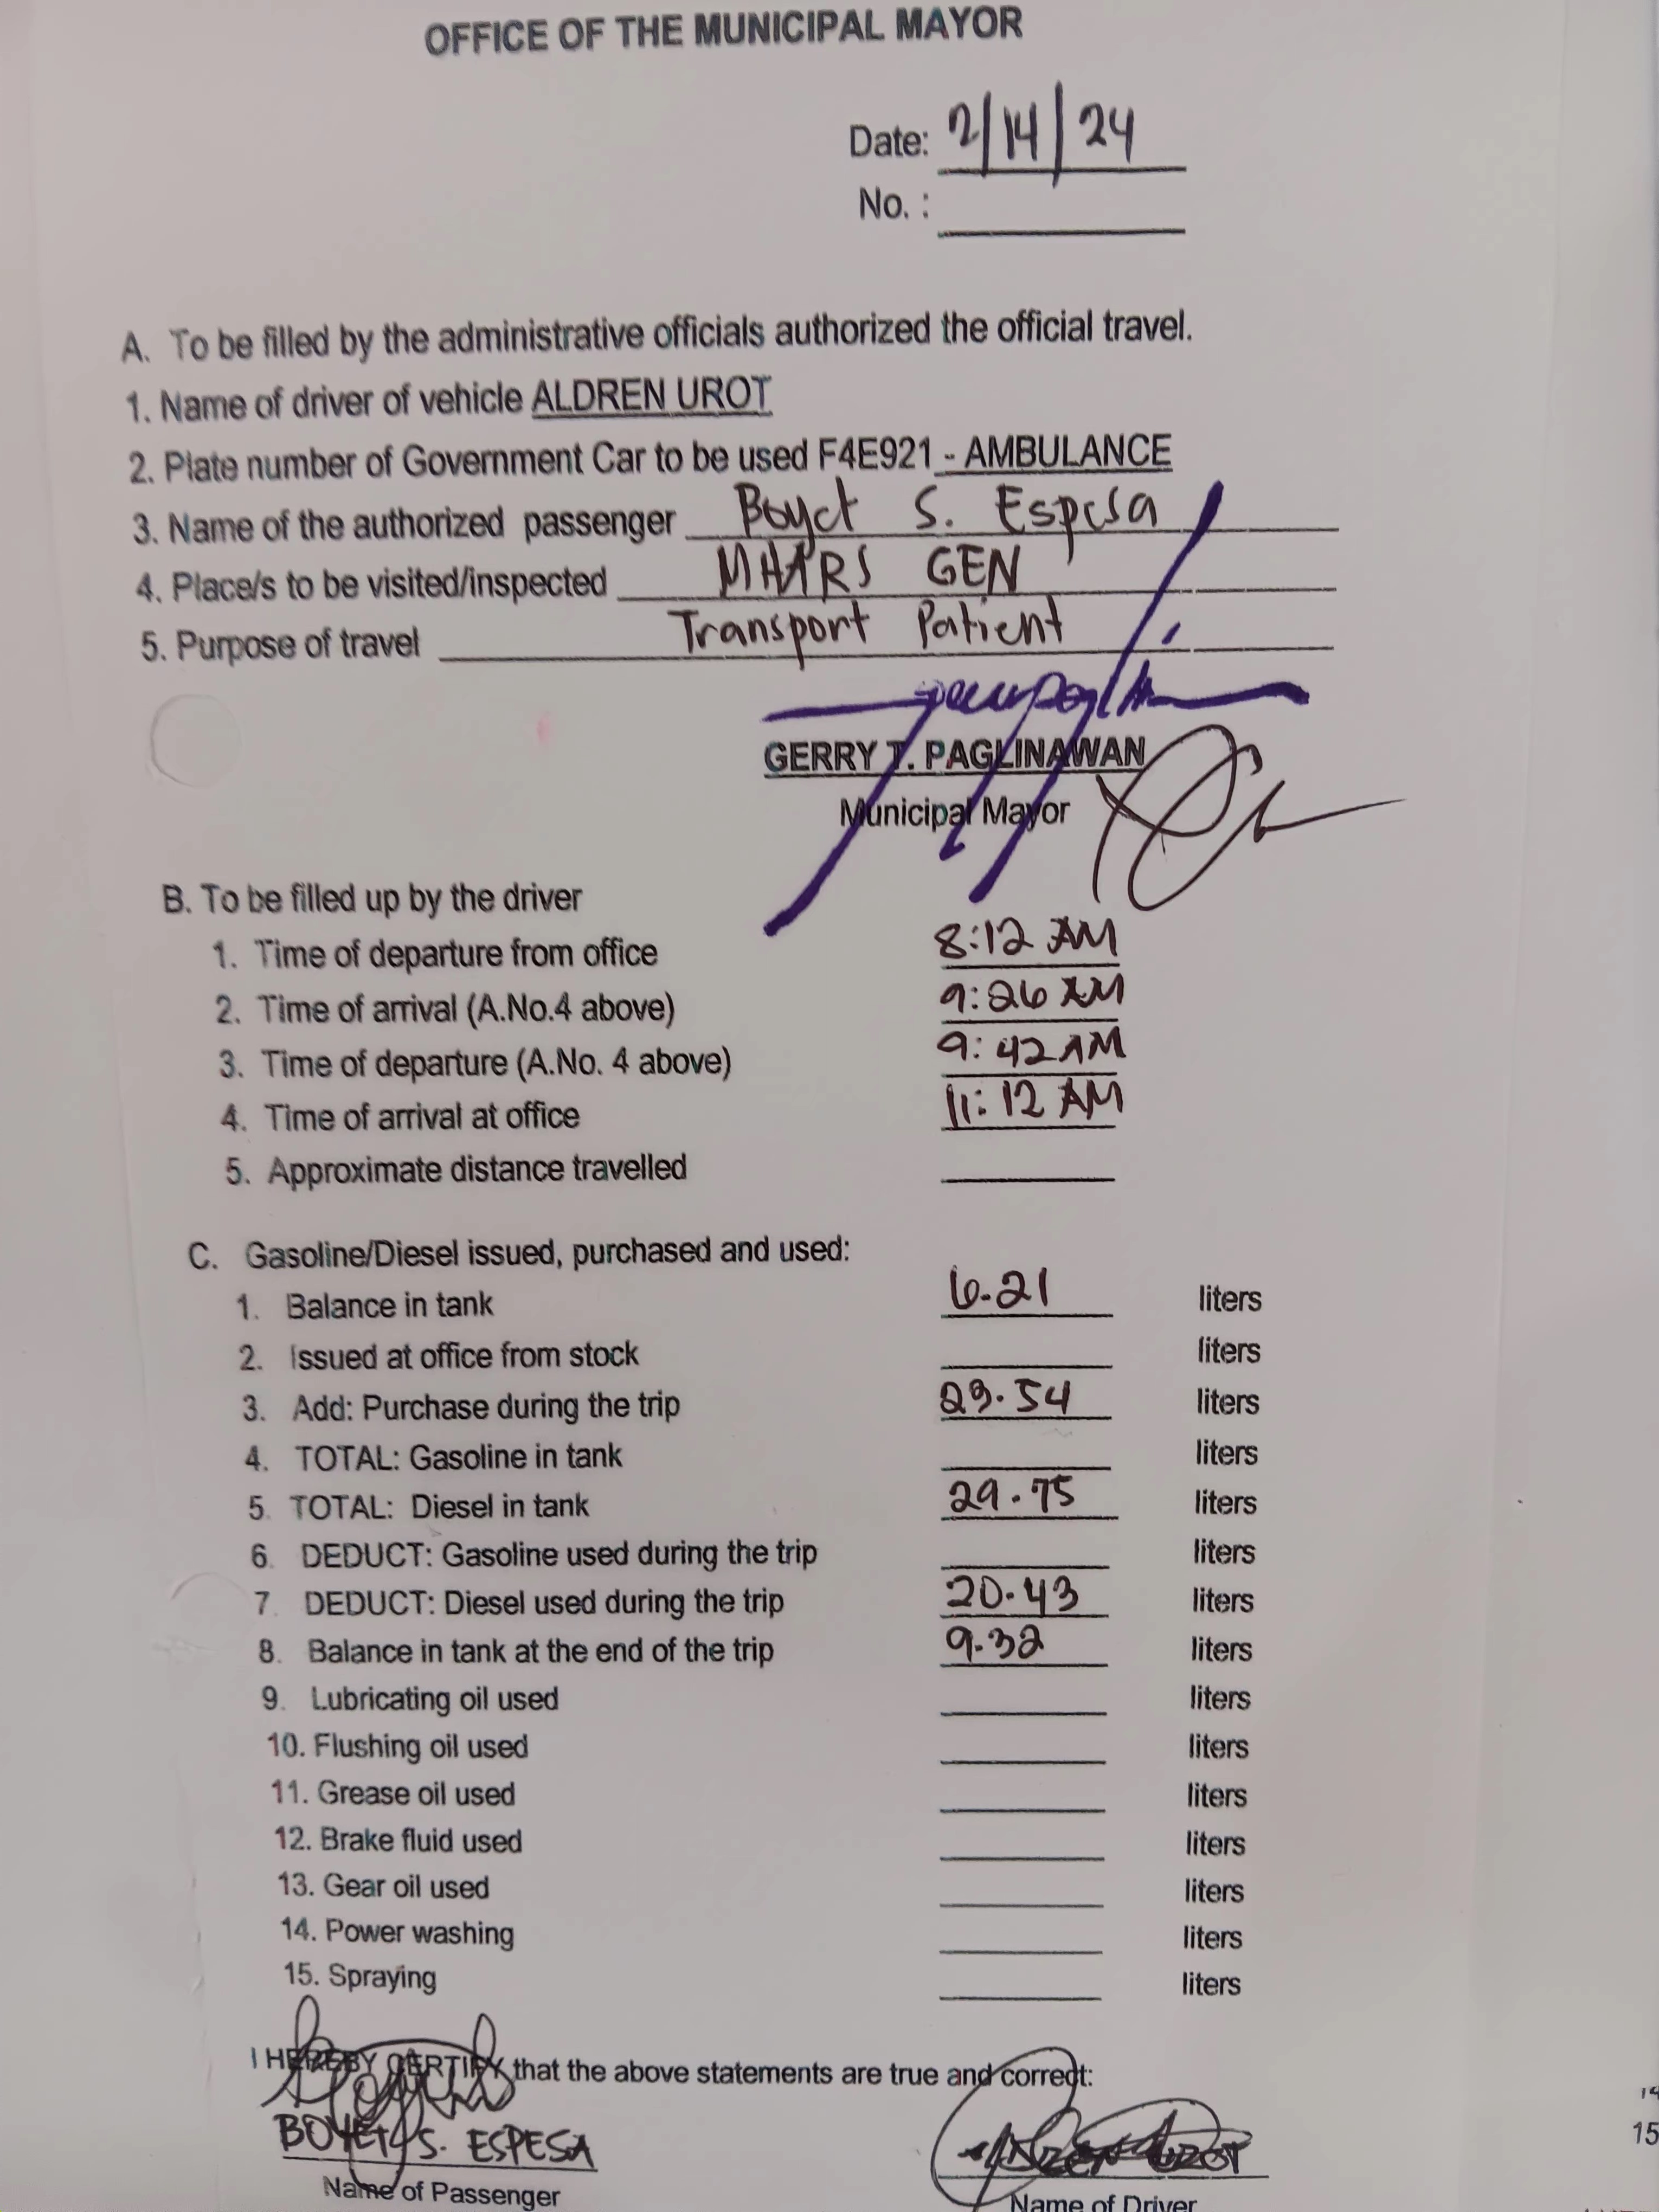 OFFICE OF THE MUNICIPAL MAYOR
Date: 2/14/24
No. :
A. To be filled by the administrative officials authorized the official travel.
1. Name of driver of vehicle ALDREN UROT
2. Plate number of Government Car to be used F4E921 - AMBULANCE
3. Name of the authorized passenger Boyet S. Espesa
4. Place/s to be visited/inspected MHARS GEN
5. Purpose of travel Transport Patient
GERRY T. PAGLINAWAN
Municipal Mayor
B. To be filled up by the driver
1. Time of departure from office 8:12 AM
2. Time of arrival (A.No.4 above) 9:26 AM
3. Time of departure (A.No. 4 above) 9:42 AM
4. Time of arrival at office 11:12 AM
5. Approximate distance travelled
C. Gasoline/Diesel issued, purchased and used:
1. Balance in tank 6.21 liters
2. Issued at office from stock liters
3. Add: Purchase during the trip 23.54 liters
4. TOTAL: Gasoline in tank liters
5. TOTAL: Diesel in tank 29.75 liters
6. DEDUCT: Gasoline used during the trip liters
7. DEDUCT: Diesel used during the trip 20.43 liters
8. Balance in tank at the end of the trip 9.32 liters
9. Lubricating oil used liters
10. Flushing oil used liters
11. Grease oil used liters
12. Brake fluid used liters
13. Gear oil used liters
14. Power washing liters
15. Spraying liters
I HEREBY CERTIFY that the above statements are true and correct:
BOYET S. ESPESA ALDREN UROT
Name of Passenger Name of Driver
14
15